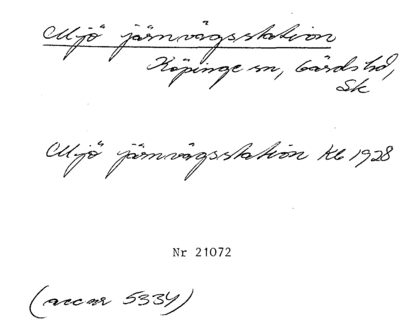 Mjö järnvägsstation
Köpinge sn, Gärds hd,
Sk
Mjö järnvägsstation Kb 1928
Nr 21072
(acc nr 5334)